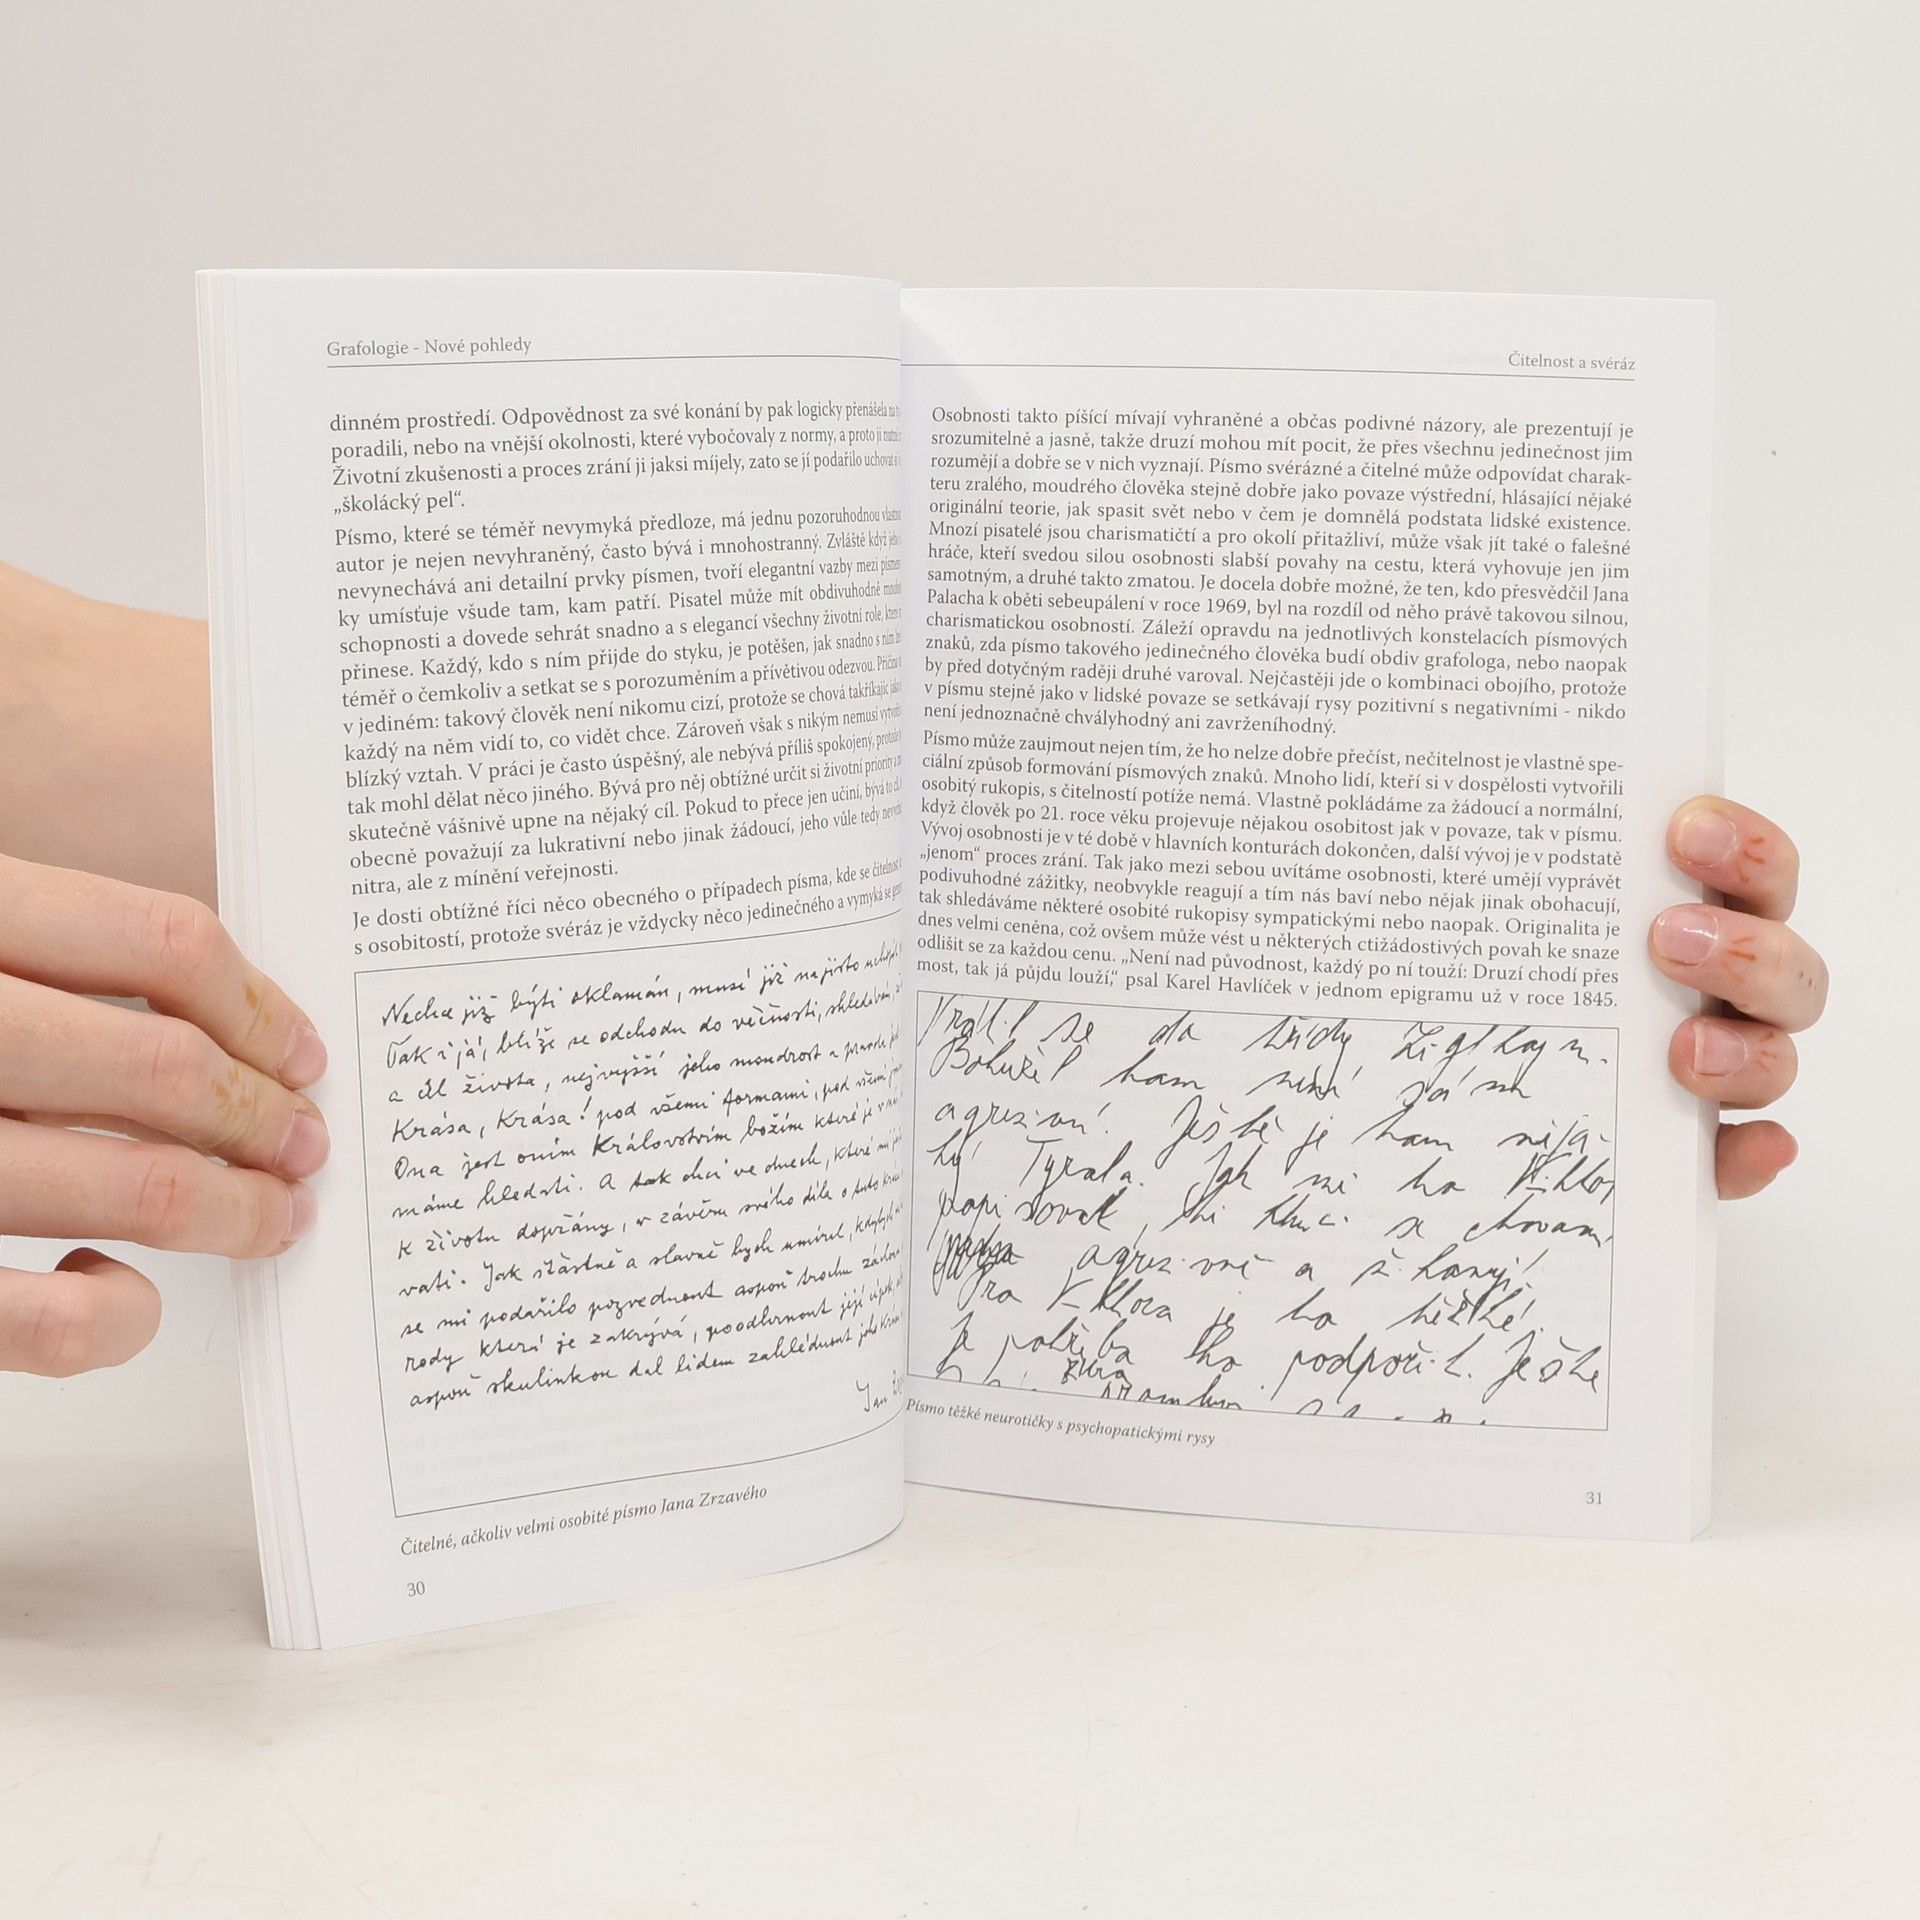 Grafologie - Nové pohledy
dinném prostředí. Odpovědnost za své konání by pak logicky přenášela na
poradili, nebo na vnější okolnosti, které vybočovaly z normy, a proto ji
Životní zkušenosti a proces zrání ji jaksi míjely, zato se jí podařilo
„školácký pel“.
Písmo, které se téměř nevymyká předloze, má jednu pozoruhodnou
autor je nejen nevyhraněný, často bývá i mnohostranný. Zvláště když
nevynechává ani detailní prvky písmen, tvoří elegantní vazby mezi
ky umísťuje všude tam, kam patří. Pisatel může mít obdivuhodně
schopnosti a dovede sehrát snadno a s elegancí všechny životní role,
přinese. Každý, kdo s ním přijde do styku, je potěšen, jak snadno s ním
téměř o čemkoliv a setkat se s porozuměním a přívětivou odezvou.
v jediném: takový člověk není nikomu cizí, protože se chová takříkajíc
každý na něm vidí to, co vidět chce. Zároveň však s nikým nemusí
blízký vztah. V práci je často úspěšný, ale nebývá příliš spokojený,
tak mohl dělat něco jiného. Bývá pro něj obtížné určit si životní priority
skutečně vášnivě upne na nějaký cíl. Pokud to přece jen učiní, bývá to
obecně považují za lukrativní nebo jinak žádoucí, jeho vůle tedy
nitra, ale z mínění veřejnosti.
Je dosti obtížné říci něco obecného o případech písma, kde se čitelnost
s osobitostí, protože svéráz je vždycky něco jedinečného a vymyká se
Nechce již býti oklamán, musí již najisto
Tak i já, blíže se odchodu do věčnosti, shledávám,
a cíl života, nejvyšší jeho moudrost a
Krása, Krása! pod všemi formami, pod všemi
Ona jest oním Královstvím božím které je v
máme hledati. A tak chci ve dnech, které mi
k životu dopřány, v závěru svého díla o tuto
vati. Jak šťastně a slavně bych umíral, kdybych
se mi podařilo pozvednout aspoň trochu
rody která je zakrývá, poodhrnout její
aspoň skulinkou dal lidem zahlédnout jeho
Jan
Čitelné, ačkoliv velmi osobité písmo Jana Zrzavého
30
Čitelnost a svéráz
Osobnosti takto píšící mívají vyhraněné a občas podivné názory, ale prezentují je
srozumitelně a jasně, takže druzí mohou mít pocit, že přes všechnu jedinečnost jim
rozumějí a dobře se v nich vyznají. Písmo svérázné a čitelné může odpovídat charak-
teru zralého, moudrého člověka stejně dobře jako povaze výstřední, hlásající nějaké
originální teorie, jak spasit svět nebo v čem je domnělá podstata lidské existence.
Mnozí pisatelé jsou charismatičtí a pro okolí přitažliví, může však jít také o falešné
hráče, kteří svedou silou osobnosti slabší povahy na cestu, která vyhovuje jen jim
samotným, a druhé takto zmatou. Je docela dobře možné, že ten, kdo přesvědčil Jana
Palacha k oběti sebeupálení v roce 1969, byl na rozdíl od něho právě takovou silnou,
charismatickou osobností. Záleží opravdu na jednotlivých konstelacích písmových
znaků, zda písmo takového jedinečného člověka budí obdiv grafologa, nebo naopak
by před dotyčným raději druhé varoval. Nejčastěji jde o kombinaci obojího, protože
v písmu stejně jako v lidské povaze se setkávají rysy pozitivní s negativními - nikdo
není jednoznačně chvályhodný ani zavrženíhodný.
Písmo může zaujmout nejen tím, že ho nelze dobře přečíst, nečitelnost je vlastně spe-
ciální způsob formování písmových znaků. Mnoho lidí, kteří si v dospělosti vytvořili
osobitý rukopis, s čitelností potíže nemá. Vlastně pokládáme za žádoucí a normální,
když člověk po 21. roce věku projevuje nějakou osobitost jak v povaze, tak v písmu.
Vývoj osobnosti je v té době v hlavních konturách dokončen, další vývoj je v podstatě
„jenom“ proces zrání. Tak jako mezi sebou uvítáme osobnosti, které umějí vyprávět
podivuhodné zážitky, neobvykle reagují a tím nás baví nebo nějak jinak obohacují,
tak shledáváme některé osobité rukopisy sympatickými nebo naopak. Originalita je
dnes velmi ceněna, což ovšem může vést u některých ctižádostivých povah ke snaze
odlišit se za každou cenu. „Není nad původnost, každý po ní touží: Druzí chodí přes
most, tak já půjdu louží,“ psal Karel Havlíček v jednom epigramu už v roce 1845.
Vrátil se do třídy
Bohužel tam není sám
agresivní. Ještě je tam nějá-
ký Tyrala. Jak mi ho
popisoval, ti kluci se chovaní
agresivně a šikanují!
Pro je to těžké!
Je potřeba ho podpořit. Ještě
Písmo těžké neurotičky s psychopatickými rysy
31